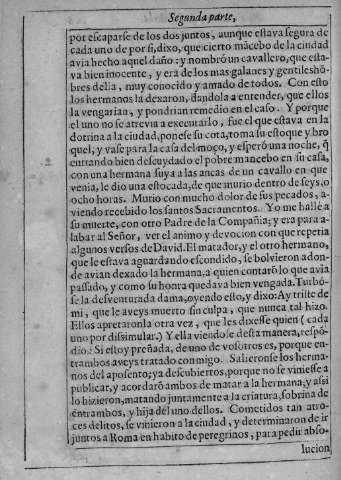 Segunda parte,
por escaparse de los dos juntos, aunque estava segura de
cada uno de por si, dixo, que cierto mãcebo de la ciudad
avia hecho aquel daño: y nombró un cavallero, que esta-
va bien inocente, y era de los mas galanes y gentiles hõ-
bres della, muy conocido y amado de todos. Con esto
los hermanos la dexaron, dandola a entender, que ellos
la vengarian, y pondrian remedio en el caso. Y porque
el uno no se atrevia a executarlo, fue el que estava en la
dotrina a la ciudad, ponese su cota, toma su estoque y bro
quel, y vase para la casa del moço, y esperó una noche, q̃
entrando bien descuydado el pobre mancebo en su casa,
con una hermana suya a las ancas de un cavallo en que
venia, le dio una estocada, de que murio dentro de seys, o
ocho horas. Murio con mucho dolor de sus pecados, a-
viendo recebido los santos Sacramentos. Yo me hallè a
su muerte, con otro Padre de la Compañia; y era para a-
labar al Señor, ver el animo y devocion con que repetia
algunos versos de David. El matador, y el otro hermano,
que le estava aguardando escondido, se bolvieron adon-
de avian dexado la hermana, a quien contarõ lo que avia
passado, y como su honra quedava bien vengada. Turbó-
se la desventurada dama, oyendo esto, y dixo: Ay triste de
mi, que le aveys muerto sin culpa, que nunca tal hizo.
Ellos apretaronla otra vez, que les dixesse quien (cada
uno por dissimular.) Y ella viendose desta manera, respõ-
dio: Si estoy preñada, de uno de vosotros es, porque en-
trambos aveys tratado conmigo. Salieronse los herma-
nos del aposento; ya descubiertos, porque no se viniesse a
publicar, y acordarõ ambos de matar a la hermana; y assi
lo hizieron, matando juntamente a la criatura, sobrina de
entrambos, y hija del uno dellos. Cometidos tan atro-
ces delitos, se vinieron a la ciudad, y determinaron de ir
juntos a Roma en habito de peregrinos, para pedir abso-
lucion,